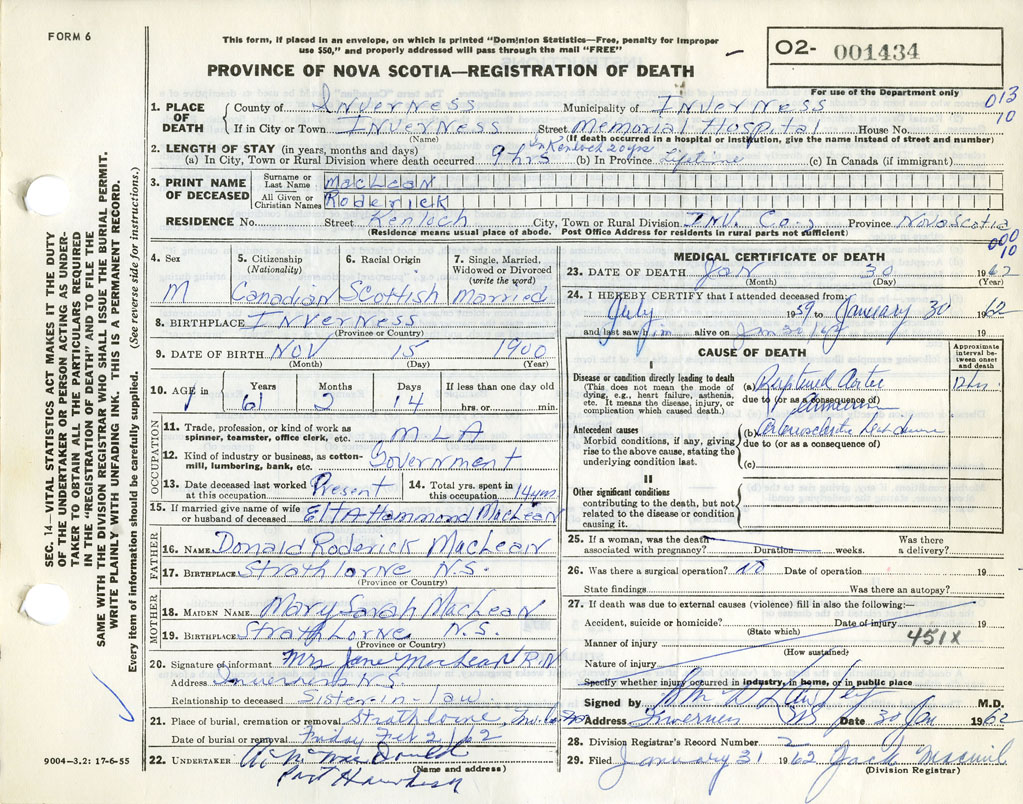 FORM 6
This form, if placed in an envelope, on which is printed "Dominion Statistics—Free, penalty for improper
use $50," and properly addressed will pass through the mail "FREE"
O2- 001434
PROVINCE OF NOVA SCOTIA—REGISTRATION OF DEATH
For use of the Department only
013
10
1. PLACE OF DEATH
County of Inverness Municipality of Inverness
If in City or Town Inverness Street Memorial Hospital House No.
(Name) (If death occurred in a hospital or institution, give the name instead of street and number)
2. LENGTH OF STAY (in years, months and days) In Kenloch 20 yrs
(a) In City, Town or Rural Division where death occurred 9 hrs (b) In Province Lifetime (c) In Canada (if immigrant)
3. PRINT NAME OF DECEASED
Surname or Last Name MacLean
All Given or Christian Names Roderick
RESIDENCE No. Street Kenloch City, Town or Rural Division INV. Co., Province Nova Scotia
(Residence means usual place of abode. Post Office Address for residents in rural parts not sufficient)
000
10
4. Sex
M
5. Citizenship
(Nationality)
Canadian
6. Racial Origin
Scottish
7. Single, Married,
Widowed or Divorced
(write the word)
Married
8. BIRTHPLACE Inverness
(Province or Country)
9. DATE OF BIRTH Nov 15 1900
(Month) (Day) (Year)
10. AGE in
Years Months Days If less than one day old
61 2 14 hrs. or min.
OCCUPATION
11. Trade, profession, or kind of work as
spinner, teamster, office clerk, etc. MLA
12. Kind of industry or business, as cotton-
mill, lumbering, bank, etc. Government
13. Date deceased last worked
at this occupation Present
14. Total yrs. spent in
this occupation 14 yrs.
15. If married give name of wife
or husband of deceased Etta Hammond MacLean
FATHER
16. NAME Donald Roderick MacLean
17. BIRTHPLACE Strathlorne N.S.
(Province or Country)
MOTHER
18. MAIDEN NAME Mary Sarah MacLean
19. BIRTHPLACE Strathlorne N.S.
(Province or Country)
20. Signature of informant Mrs Jane MacLean R.N
Address Inverness N.S
Relationship to deceased Sister-in-law
21. Place of burial, cremation or removal Strathlorne, Inv. Co
Date of burial or removal Friday Feb 2/62
22. UNDERTAKER
(Name and address)
Port
MEDICAL CERTIFICATE OF DEATH
23. DATE OF DEATH Jan 30 1962
(Month) (Day) (Year)
24. I HEREBY CERTIFY that I attended deceased from
July 1959 to January 30 1962
and last saw him alive on
CAUSE OF DEATH
Approximate
interval be-
tween onset
and death
I
Disease or condition directly leading to death
(This does not mean the mode of
dying, e.g., heart failure, asthenia,
etc. It means the disease, injury, or
complication which caused death.)
(a) Ruptured Aortic 12 hrs
due to (or as a consequence of)
Aneurism
Antecedent causes
Morbid conditions, if any, giving
rise to the above cause, stating the
underlying condition last.
(b)
due to (or as a consequence of)
(c)
II
Other significant conditions
contributing to the death, but not
related to the disease or condition
causing it.
25. If a woman, was the death
associated with pregnancy? Duration weeks. Was there
a delivery?
26. Was there a surgical operation? no Date of operation 19
State findings Was there an autopsy?
27. If death was due to external causes (violence) fill in also the following:—
Accident, suicide or homicide? Date of injury 19
(State which)
451X
Manner of injury
(How sustained)
Nature of injury
Specify whether injury occurred in industry, in home, or in public place
Signed by M.D.
Address Inverness NS Date 30 Jan 1962
28. Division Registrar's Record Number 2
29. Filed January 31 1962 Jack
(Division Registrar)
SEC. 14—VITAL STATISTICS ACT MAKES IT THE DUTY
OF THE UNDERTAKER OR PERSON ACTING AS UNDER-
TAKER TO OBTAIN ALL THE PARTICULARS REQUIRED
IN THE "REGISTRATION OF DEATH" AND TO FILE THE
SAME WITH THE DIVISION REGISTRAR WHO SHALL ISSUE THE BURIAL PERMIT.
WRITE PLAINLY WITH UNFADING INK. THIS IS A PERMANENT RECORD.
Every item of information should be carefully supplied. (See reverse side for instructions.)
9004—3.2: 17-6-55